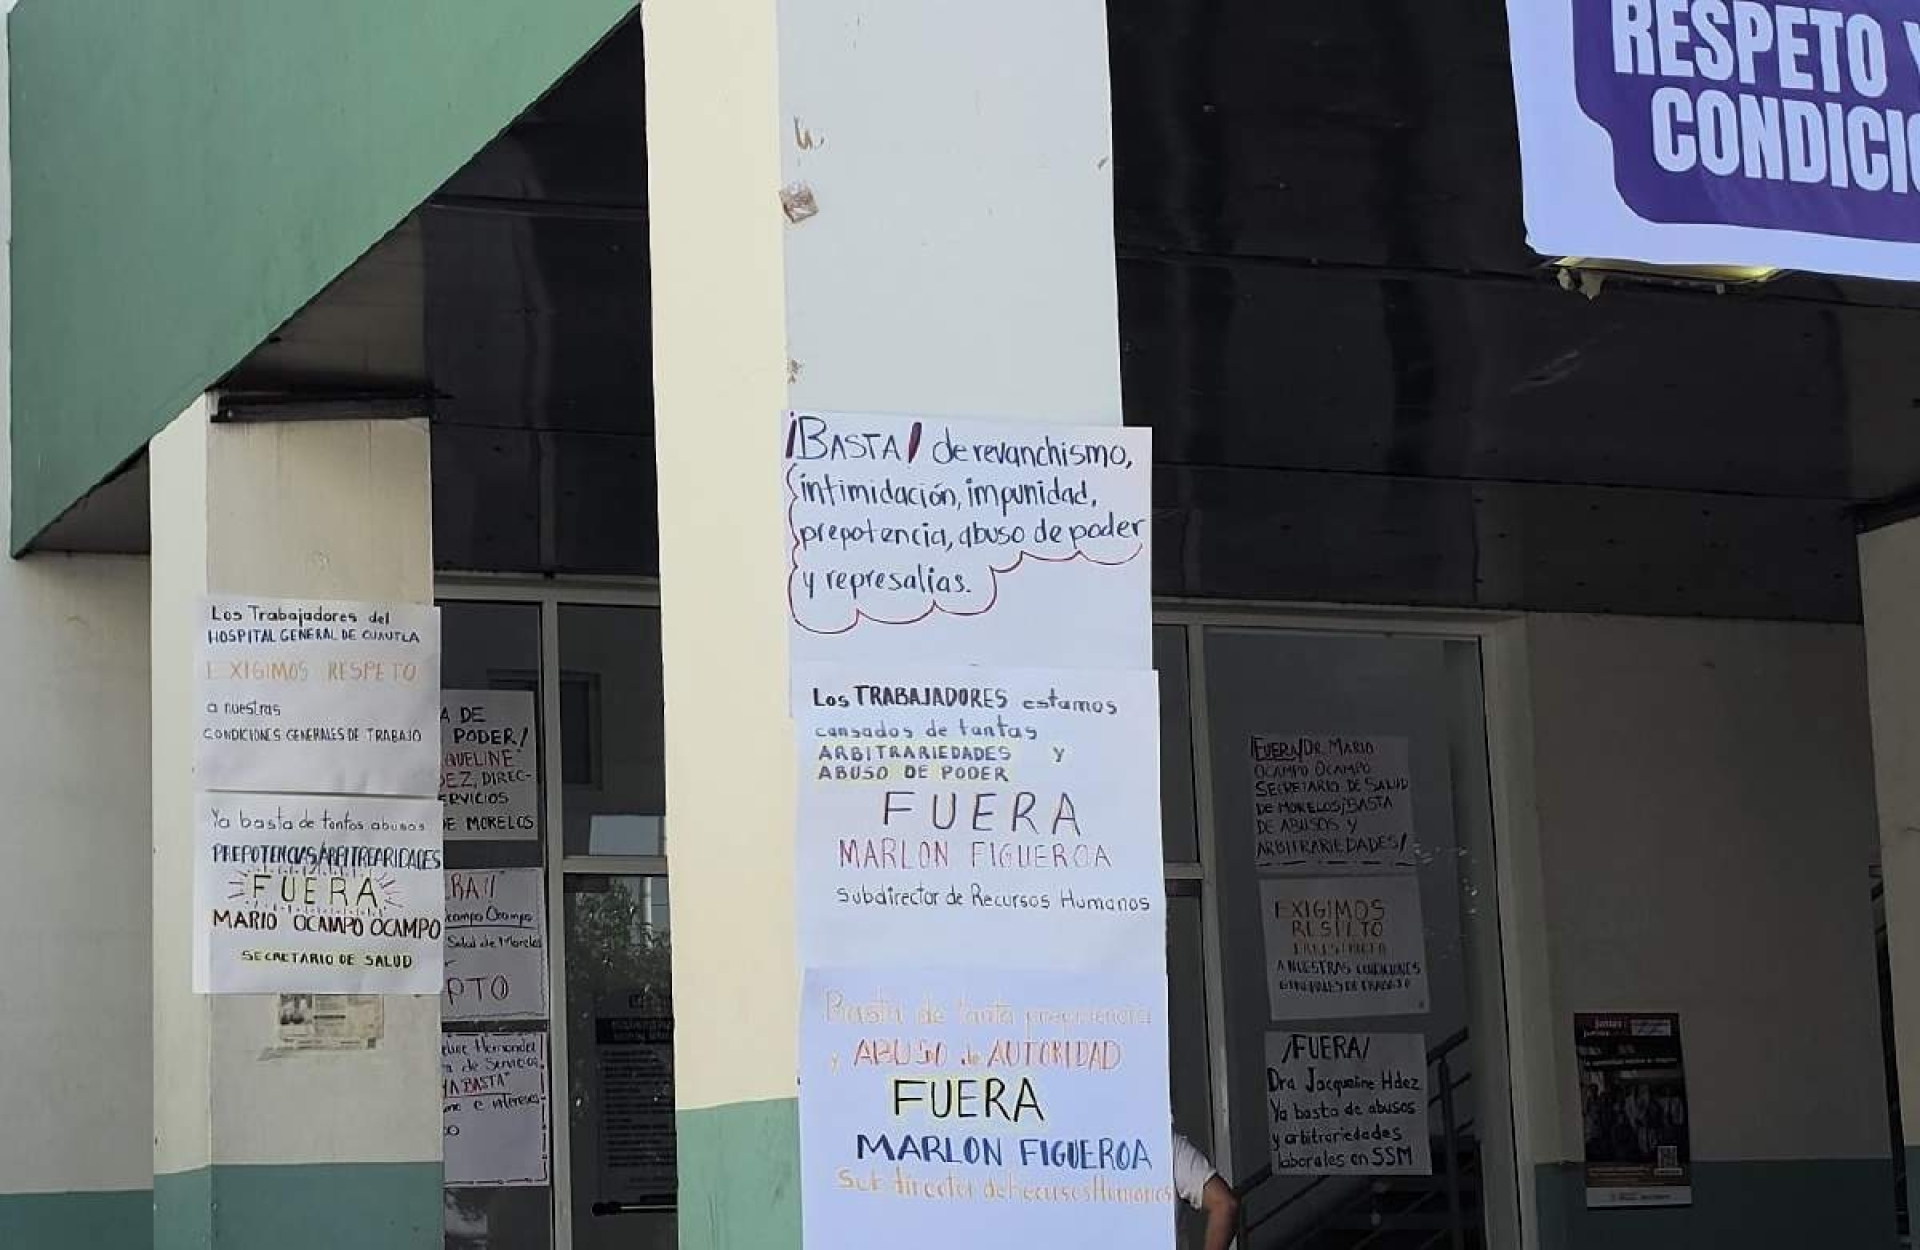 RESPETO Y
CONDICIO
¡BASTA! de revanchismo,
intimidación, impunidad,
prepotencia, abuso de poder
y represalias.
Los TRABAJADORES estamos
cansados de tantas
ARBITRARIEDADES Y
ABUSO DE PODER
FUERA
MARLON FIGUEROA
Subdirector de Recursos Humanos
Basta de tanta prepotencia
y ABUSO de AUTORIDAD
FUERA
MARLON FIGUEROA
Sub director de Recursos Humanos
Los Trabajadores del
HOSPITAL GENERAL DE CUAUTLA
EXIGIMOS RESPETO
a nuestras
CONDICIONES GENERALES DE TRABAJO
Ya basta de tantos abusos
PREPOTENCIAS/ARBITREARIDADES
FUERA
MARIO OCAMPO OCAMPO
SECRETARIO DE SALUD
A DE
PODER/
QUELINE
DEZ, DIREC-
SERVICIOS
DE MORELOS
RA!!
campo Ocampo
Salud de Morelos
PTO
eline Hernandez
a de Servicios
YA BASTA"
e intereses
/FUERA/ DR. MARIO
OCAMPO OCAMPO
SECRETARIO DE SALUD
DE MORELOS/BASTA
DE ABUSOS Y
ARBITRARIEDADES/
EXIGIMOS
RESPETO
A NUESTRAS CONDICIONES
GENERALES DE TRABAJO
/FUERA/
Dra Jacqueline Hdez
Ya basta de abusos
y arbitrariedades
laborales en SSM